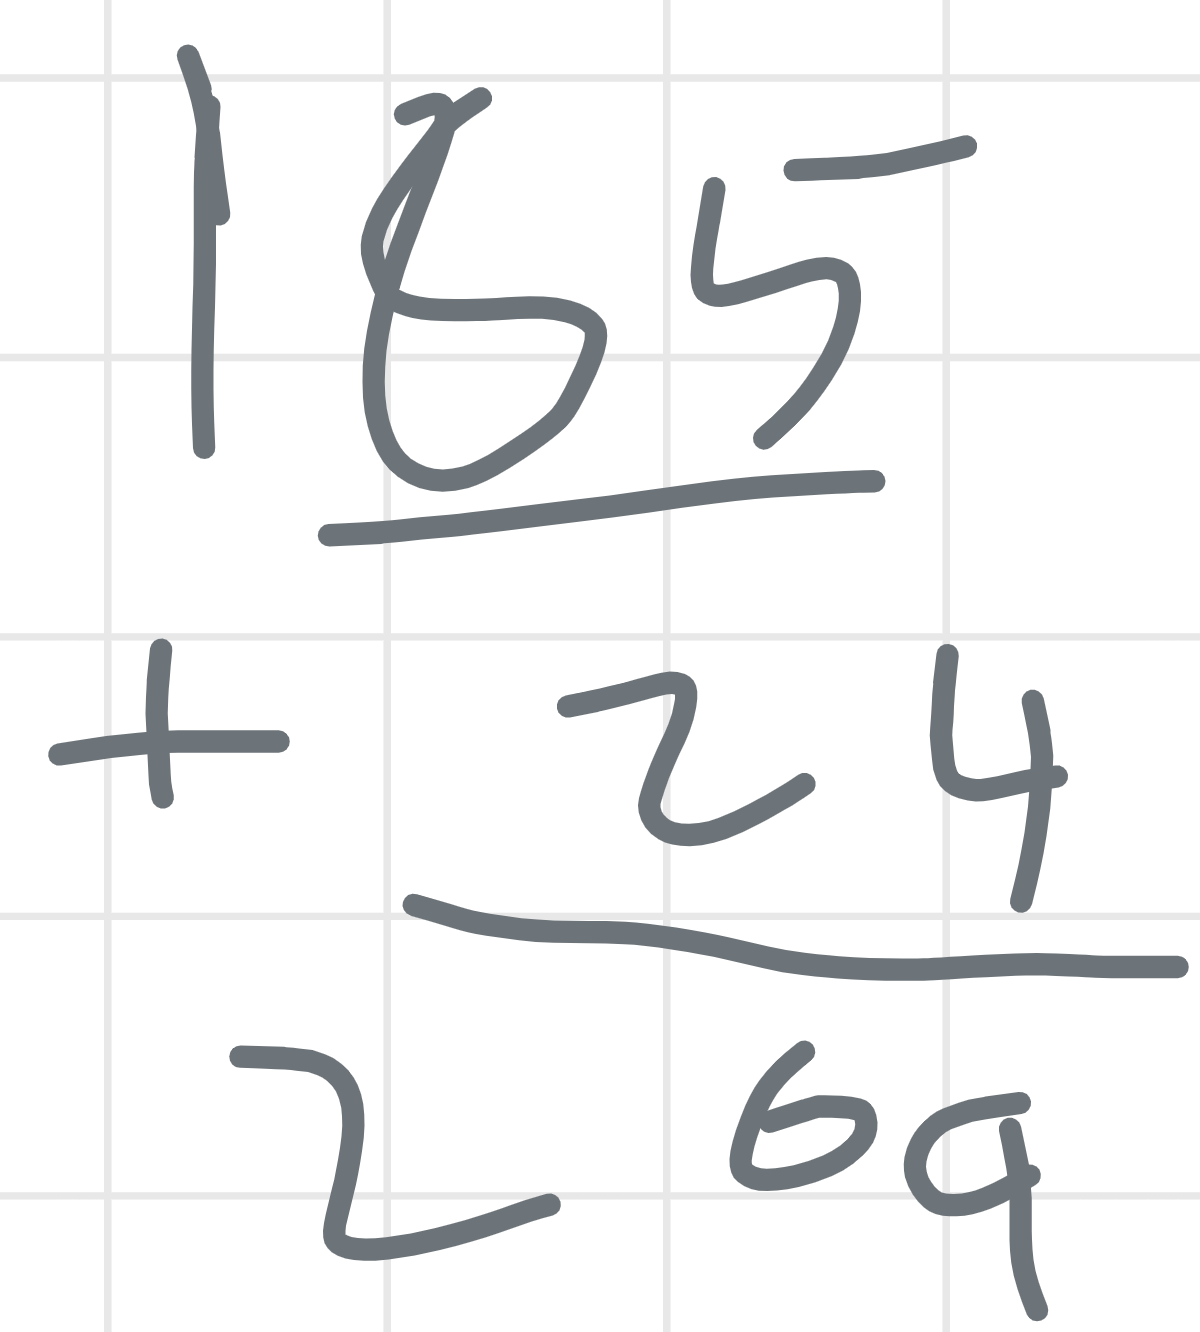 185
+ 24
269